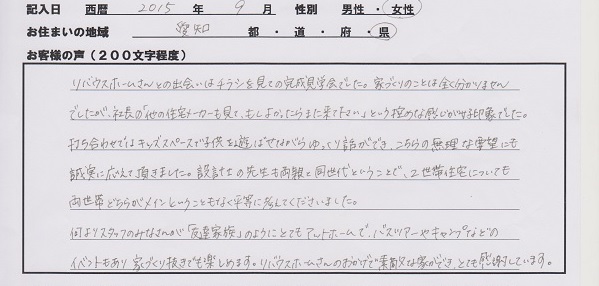 記入日 西暦 2015 年 9 月 性別 男性・女性
お住まいの地域 愛知 都・道・府・県
お客様の声（200文字程度）
リバウスホームさんとの出会いはチラシを見ての完成見学会でした。家づくりのことは全く分かりません
でしたが、社長の「他の住宅メーカーも見て、もしよかったらまた来て下さい」という控めな感じがいい印象でした。
打ち合わせではキッズスペースで子供を遊ばせながらゆっくり話ができ、こちらの無理な要望にも
誠実に応えて頂きました。設計士の先生も両親と同世代ということで、2世帯住宅についても
両世帯どちらがメインということもなく平等に考えてくださいました。
何よりスタッフのみなさんが「友達家族」のようにとてもアットホームで、バスツアーやキャンプなどの
イベントもあり家づくり抜きでも楽しめます。リバウスホームさんのおかげで素敵な家ができ、とても感謝しています。